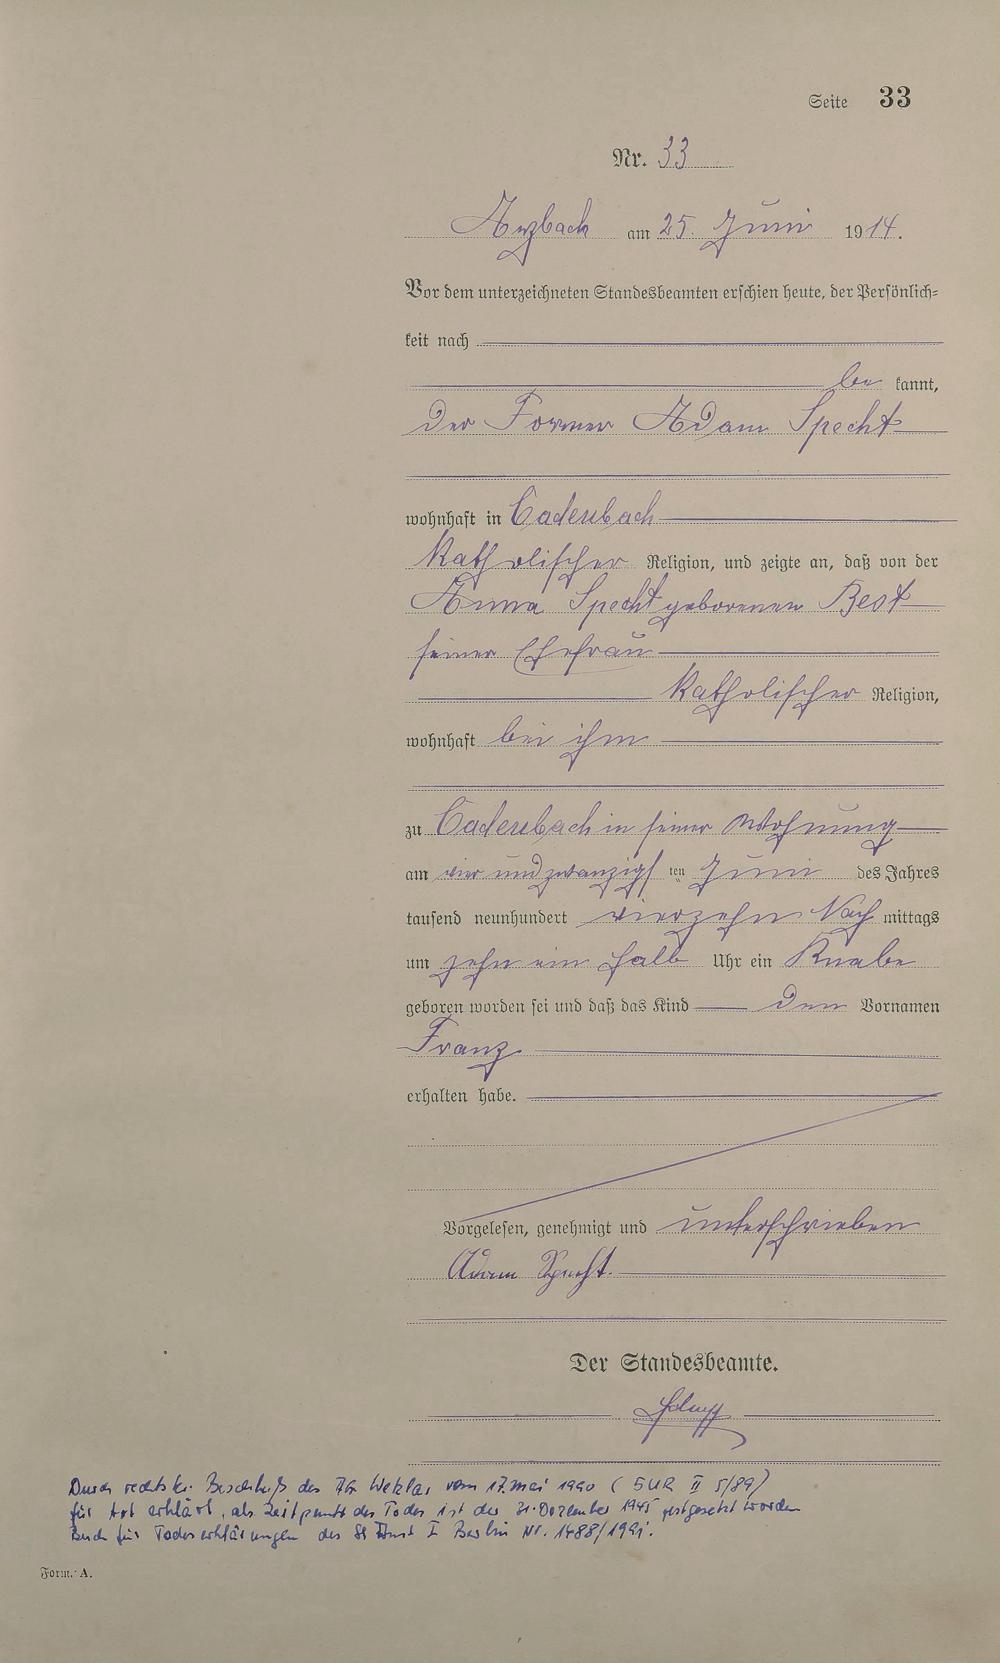 Seite 33
Nr. 33
Arzbach am 25. Juni 1914.
Vor dem unterzeichneten Standesbeamten erschien heute, der Persönlich=
keit nach
be kannt,
der Former Adam Specht
wohnhaft in Cadenbach
katholischer Religion, und zeigte an, daß von der
Anna Specht geborenen Best
seiner Ehefrau
katholischer Religion,
wohnhaft bei ihm
zu Cadenbach in seiner Wohnung
am vier und zwanzigs ten Juni des Jahres
tausend neunhundert vierzehn Nach mittags
um zehn ein halb Uhr ein Knabe
geboren worden sei und daß das Kind den Vornamen
Franz
erhalten habe.
Vorgelesen, genehmigt und unterschrieben
Adam Specht.
Der Standesbeamte.
Durch rechtskr. Beschluß des AG Wetzlar vom 17. Mai 1990 (5 UR II 5/89)
für tot erklärt, als Zeitpunkt des Todes ist der 31. Dezember 1945 festgesetzt worden
Buch für Todeserklärungen des St Amt I Berlin Nr. 1488/1991.
Form. A.